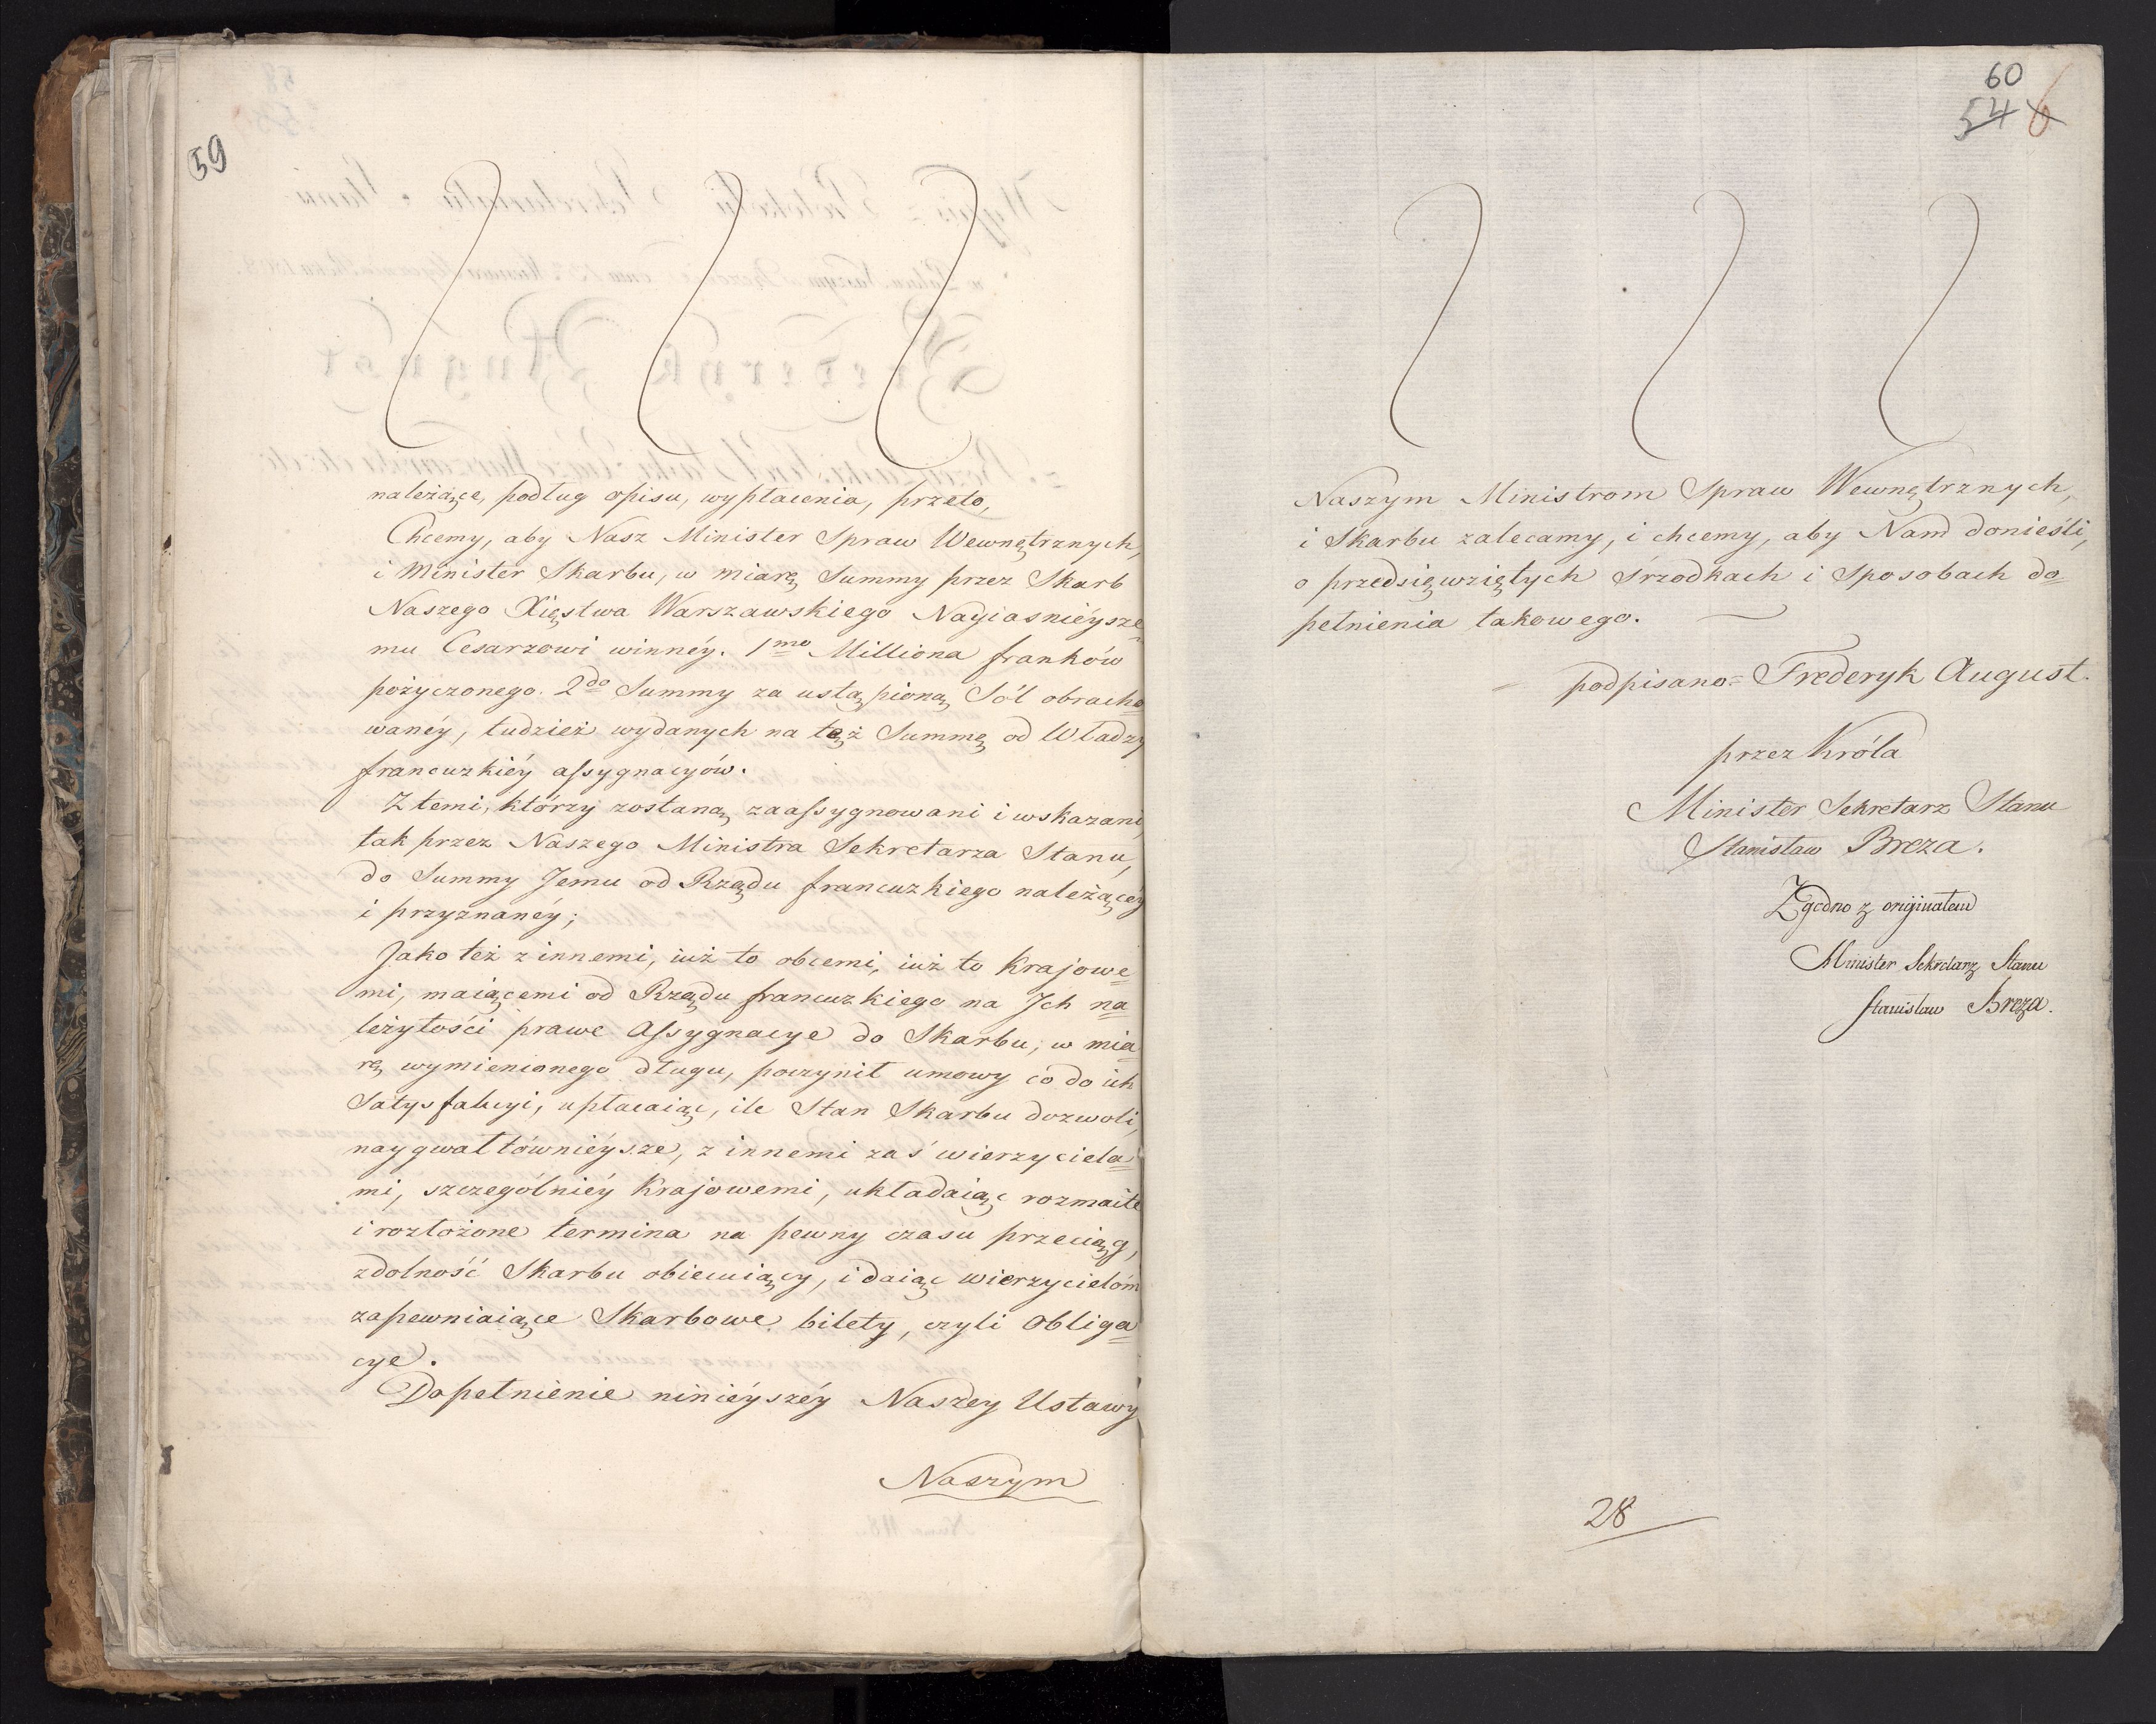 59
należące, podług opisu, wypłacenia, przeto,
Chcemy, aby Nasz Minister Spraw Wewnętrznych,
i Minister Skarbu, w miarę Summy przez Skarb
Naszego Xięstwa Warszawskiego Nayiaśnieysze=
mu Cesarzowi winnéy. 1mo Milliona franków
pożyczonego. 2do Summy za ustąpioną Sól obracho=
wanéy, tudzież wydanych na tęż Summę od Władzy
francuzkiéy assygnacyów.
Z temi, którzy zostaną zaassygnowani i wskazani,
tak przez Naszego Ministra Sekretarza Stanu,
do Summy Jemu od Rządu francuzkiego należącéy
i przyznanéy;
Jako też z innemi, iuż to obcemi, iuż to Krajowe=
mi, maiącemi od Rządu francuzkiego na Ich na=
leżytości prawe Assygnacye do Skarbu, w mia=
rę wymienionego długu, poczynił umowy co do ich
Satysfakcyi, upłacaiąc, ile Stan Skarbu dozwoli,
naygwałtównieysze, z innemi zaś wierzyciela=
mi, szczególniéy Krajowemi, układaiąc rozmaite
i rozłożone termina na pewny czasu przeciąg,
zdolność Skarbu obiemiący, i daiąc wierzycielóm
zapewniaiące Skarbowe bilety, czyli Obliga=
cye.
Dopełnienie ninieyszéy Naszey Ustawy
Naszym
60
54 6
Naszym Ministrom Spraw Wewnętrznych,
i Skarbu zalecamy, i chcemy, aby Nam donieśli,
o przedsięwziętych śrzodkach i Sposobach do=
pełnienia takowego.
podpisano= Frederyk August.
przez Króla
Minister Sekretarz Stanu
Stanisław Breza.
Zgodno z originałem
Minister Sekretarz Stanu
Stanisław Breza.
28